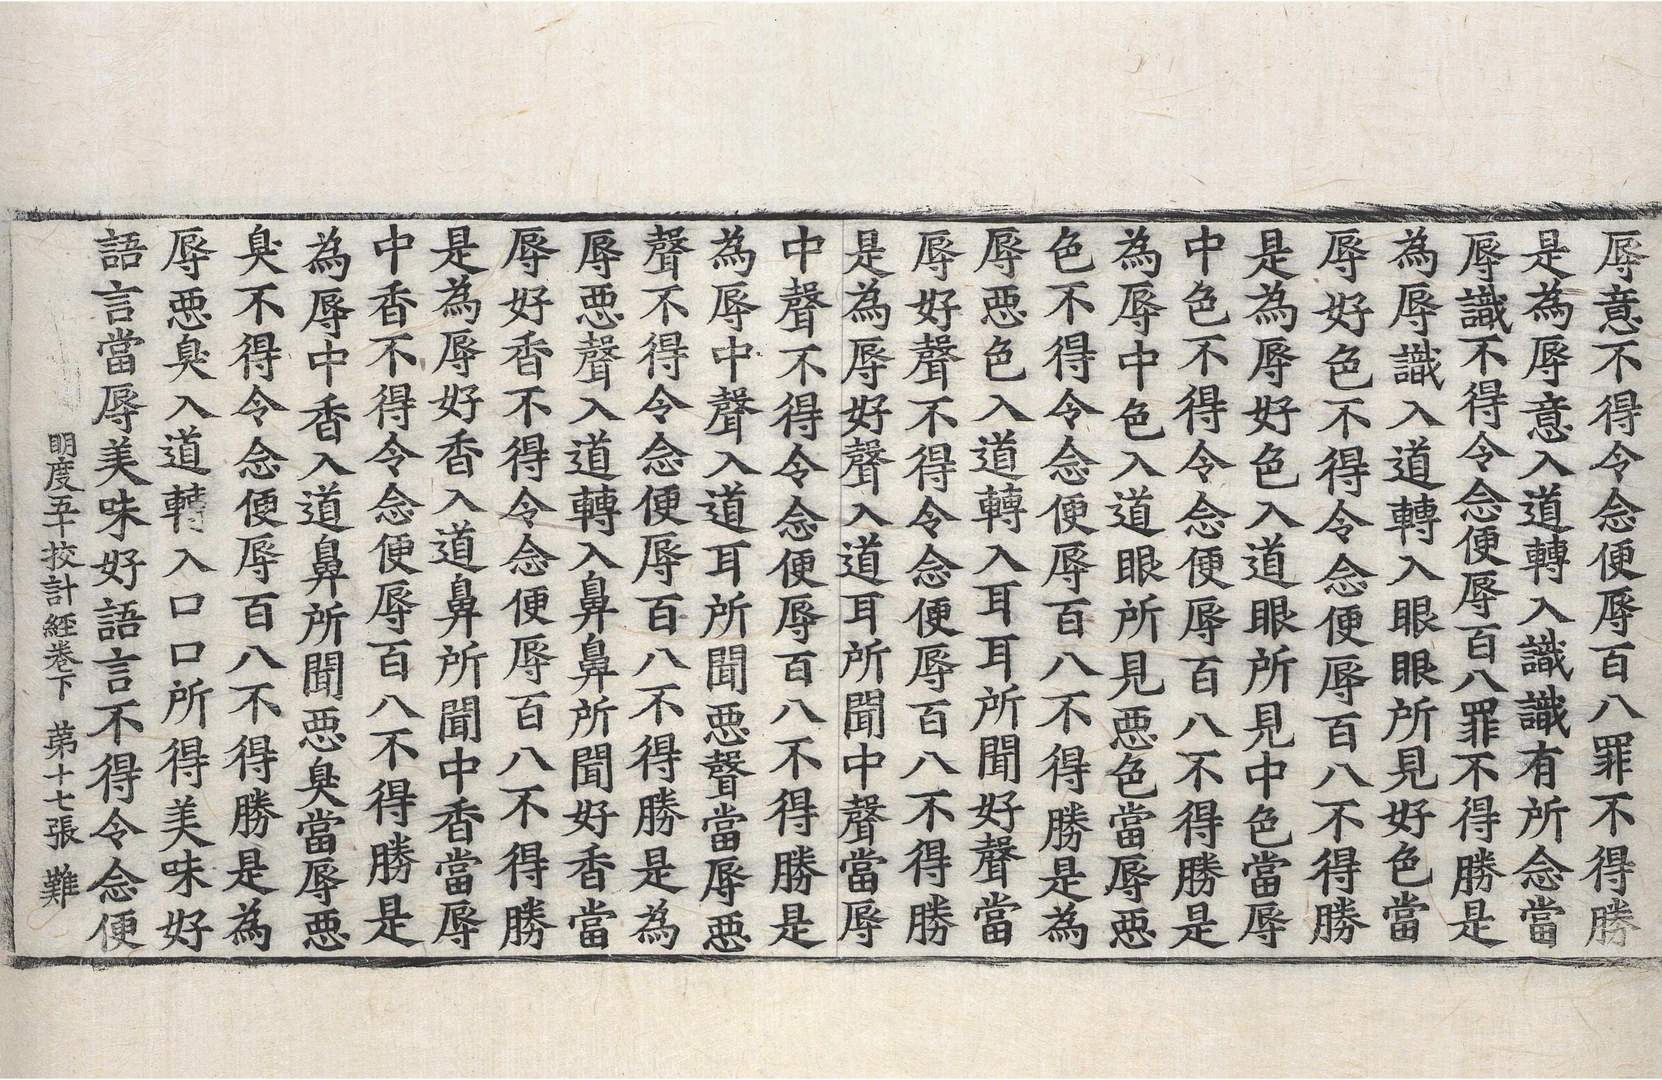 辱意不得令念便辱百八罪不得勝
是為辱意入道轉入識識有所念當
辱識不得令念便辱百八罪不得勝是
為辱識入道轉入眼眼所見好色當
辱好色不得令念便辱百八不得勝
是為辱好色入道眼所見中色當辱
中色不得令念便辱百八不得勝是
為辱中色入道眼所見惡色當辱惡
色不得令念便辱百八不得勝是為
辱惡色入道轉入耳耳所聞好聲當
辱好聲不得令念便辱百八不得勝
是為辱好聲入道耳所聞中聲當辱
中聲不得令念便辱百八不得勝是
為辱中聲入道耳所聞惡聲當辱惡
聲不得令念便辱百八不得勝是為
辱惡聲入道轉入鼻鼻所聞好香當
辱好香不得令念便辱百八不得勝
是為辱好香入道鼻所聞中香當辱
中香不得令念便辱百八不得勝是
為辱中香入道鼻所聞惡臭當辱惡
臭不得令念便辱百八不得勝是為
辱惡臭入道轉入口口所得美味好
語言當辱美味好語言不得令念便
明度五十挍計經卷下 苐十七張 難